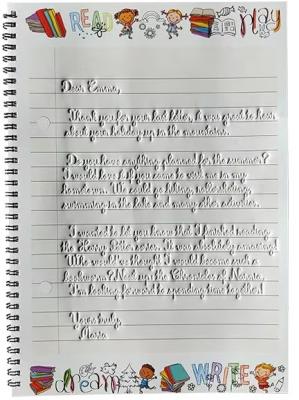 READ play
Dear Emma,
Thank you for your last letter, it was great to hear
about your holiday up in the mountains.
Do you have anything planned for the summer?
I would love it if you came to visit me in my
hometown. We could go hiking, rollerblading,
swimming in the lake and many other activities.
I wanted to let you know that I finished reading
the Harry Potter series. It was absolutely amazing!
Who would've thought I would become such a
bookworm? Next up: the Chronicles of Narnia.
I'm looking forward to spending time together!
Yours truly,
Maria
dream WRITE